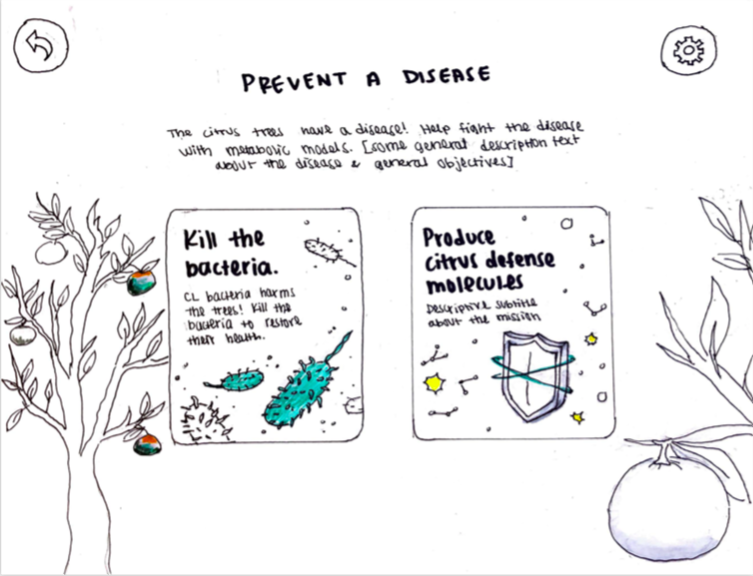 PREVENT A DISEASE
The citrus trees have a disease! Help fight the disease
with metabolic models. [some general description text
about the disease & general objectives]
Kill the
bacteria.
CL bacteria harms
the trees! Kill the
bacteria to restore
their health.
Produce
citrus defense
molecules
Descriptive subtitle
about the mission